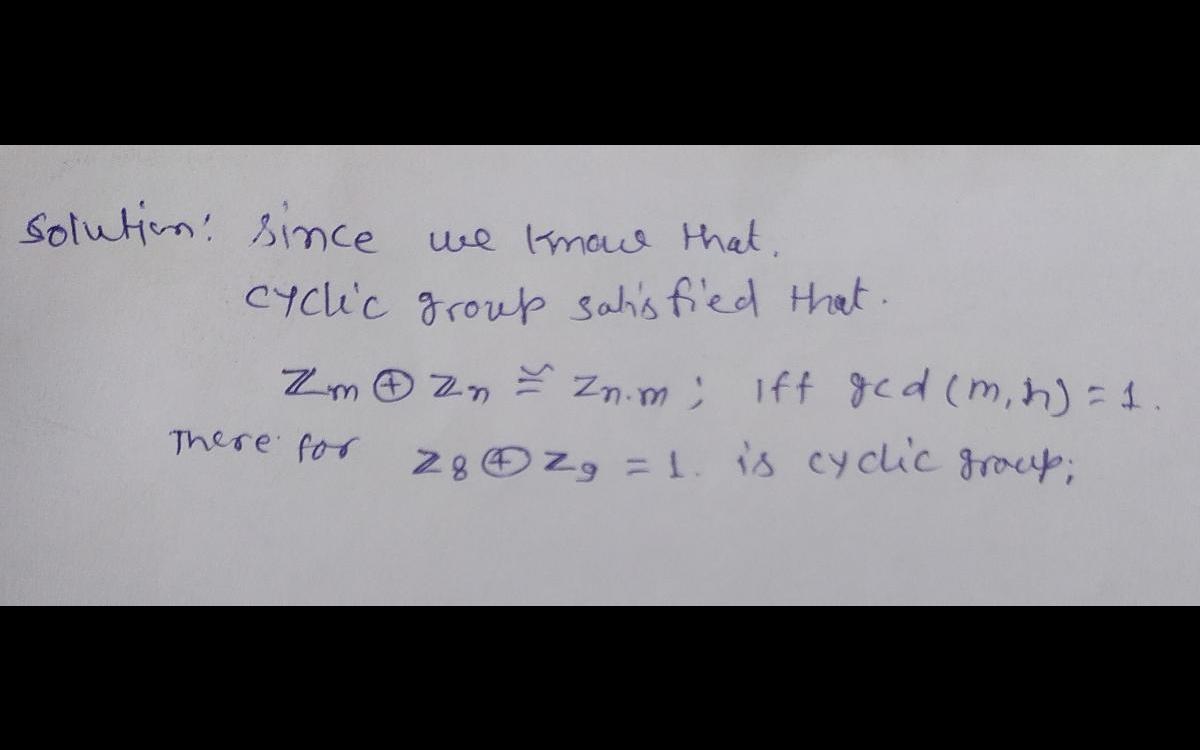 Solution: Since we know that.
cyclic group satisfied that.
Zm ⊕ Zn ≅ Zn.m ; iff gcd (m,n) = 1.
There for Z8 ⊕ Z9 = 1. is cyclic group;